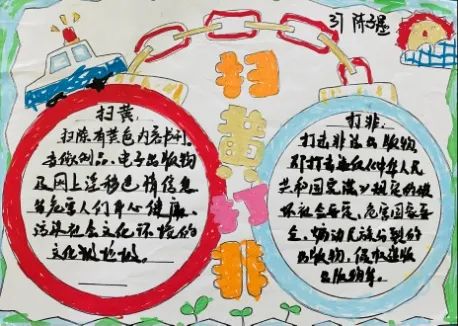 31 陈子墨
扫黄打非
扫黄:
扫除有黄色内容书刊、
音像制品、电子出版物
及网上淫秽色情信息
等危害人们身心健康、
污染社会文化环境的
文化垃圾。
打非:
打击非法出版物
即打击违反《中华人民
共和国宪法》规定的破
坏社会安定、危害国家安
全、煽动民族分裂的
出版物,侵权盗版
出版物等。